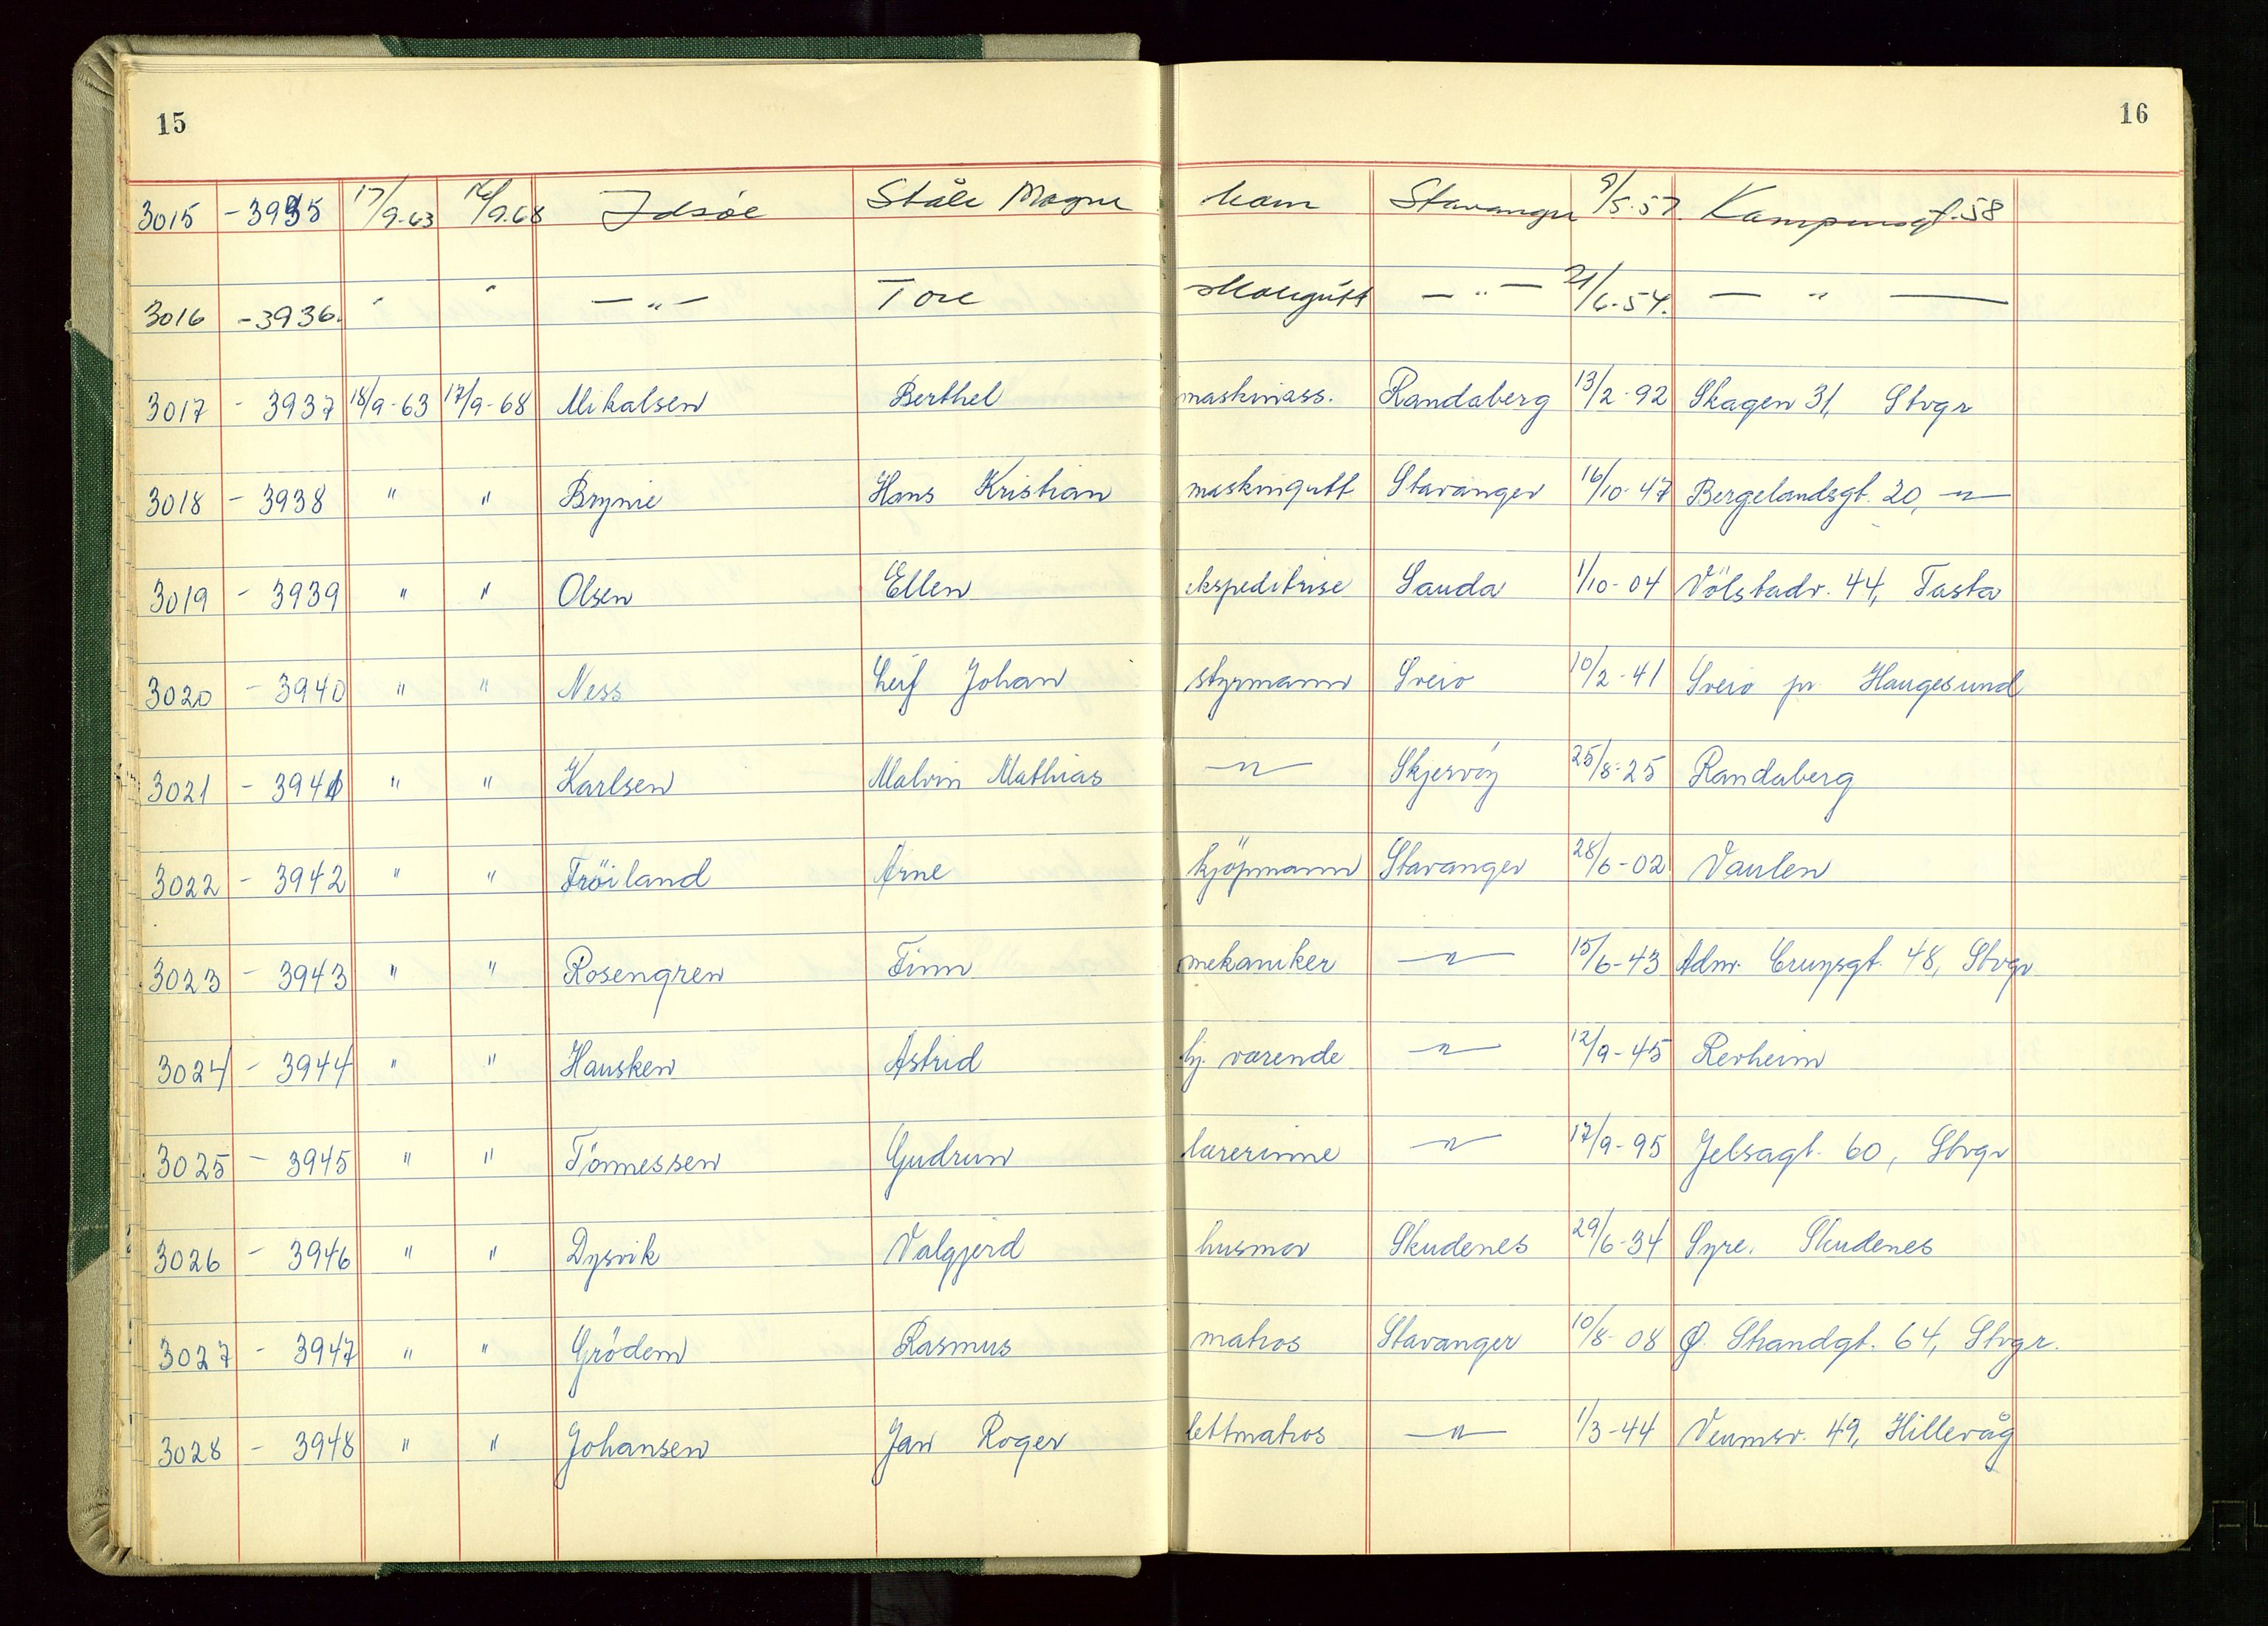 15
16
3015 - 3935 17/9-63 16/9.68 Idsøe Ståle Magne barn Stavanger 9/5.57. Kampensgt. 58
3016 - 3936. " " — " — Tore skolegutt — " — 21/6-54. — " —
3017 - 3937 18/9-63 17/9-68 Mikalsen Berthel maskinass. Randaberg 13/2-92 Skagen 31, Stvgr
3018 - 3938 " " Brynie Hans Kristian maskingutt Stavanger 16/10-47 Bergelandsgt. 20, — " —
3019 - 3939 " " Olsen Ellen ekspeditrise Sauda 1/10-04 Völstadv. 44, Tasta
3020 - 3940 " " Ness Leif Johan styrmann Sveio 10/2-41 Sveio pr. Haugesund
3021 - 3941 " " Karlsen Malvin Mathias — " — Skjervöy 25/8-25 Randaberg
3022 - 3942 " " Fröiland Arne kjöpmann Stavanger 28/6-02 Vaulen
3023 - 3943 " " Rosengren Finn mekaniker — " — 15/6-43 Adm. Cruysgt. 48, Stvgr
3024 - 3944 " " Hausken Astrid hj. værende — " — 12/9-45 Revheim
3025 - 3945 " " Tönnessen Gudrun lærerinne — " — 17/9-95 Jelsagt. 60, Stvgr
3026 - 3946 " " Dysvik Valgjerd husmor Skudenes 29/6-34 Syre, Skudenes
3027 - 3947 " " Grödem Rasmus matros Stavanger 10/8-08 Ø. Strandgt. 64, Stvgr.
3028 - 3948 " " Johansen Jan Roger lettmatros — " — 1/3-44 49, Hillevåg